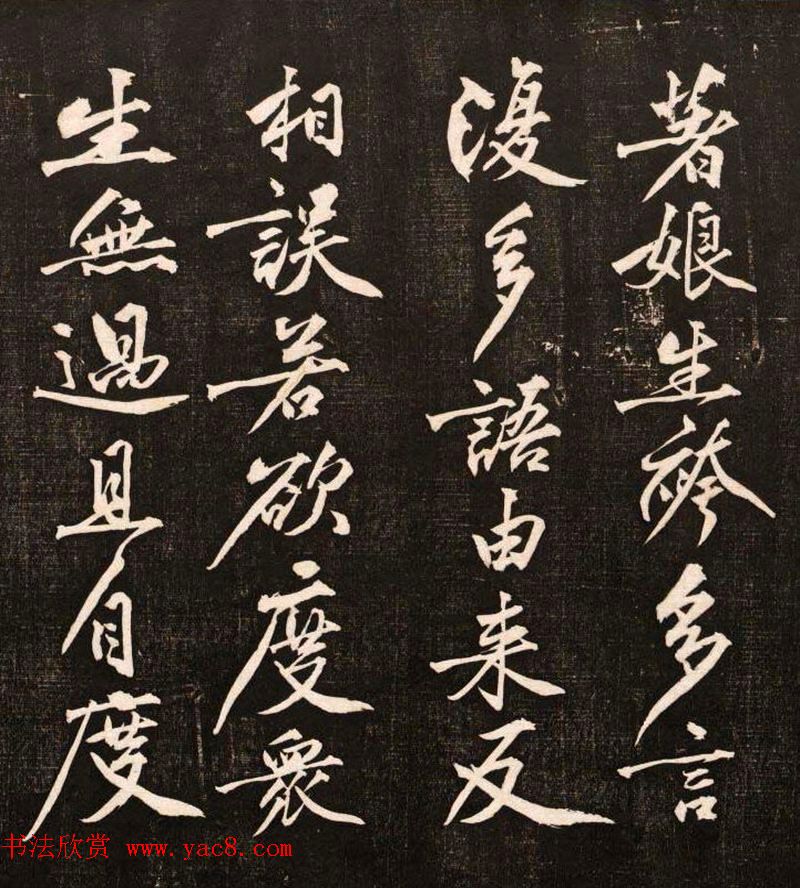 著娘生袴多言
復多語由来反
相誤若欲度衆
生無過且自度
书法欣赏 www.yac8.com